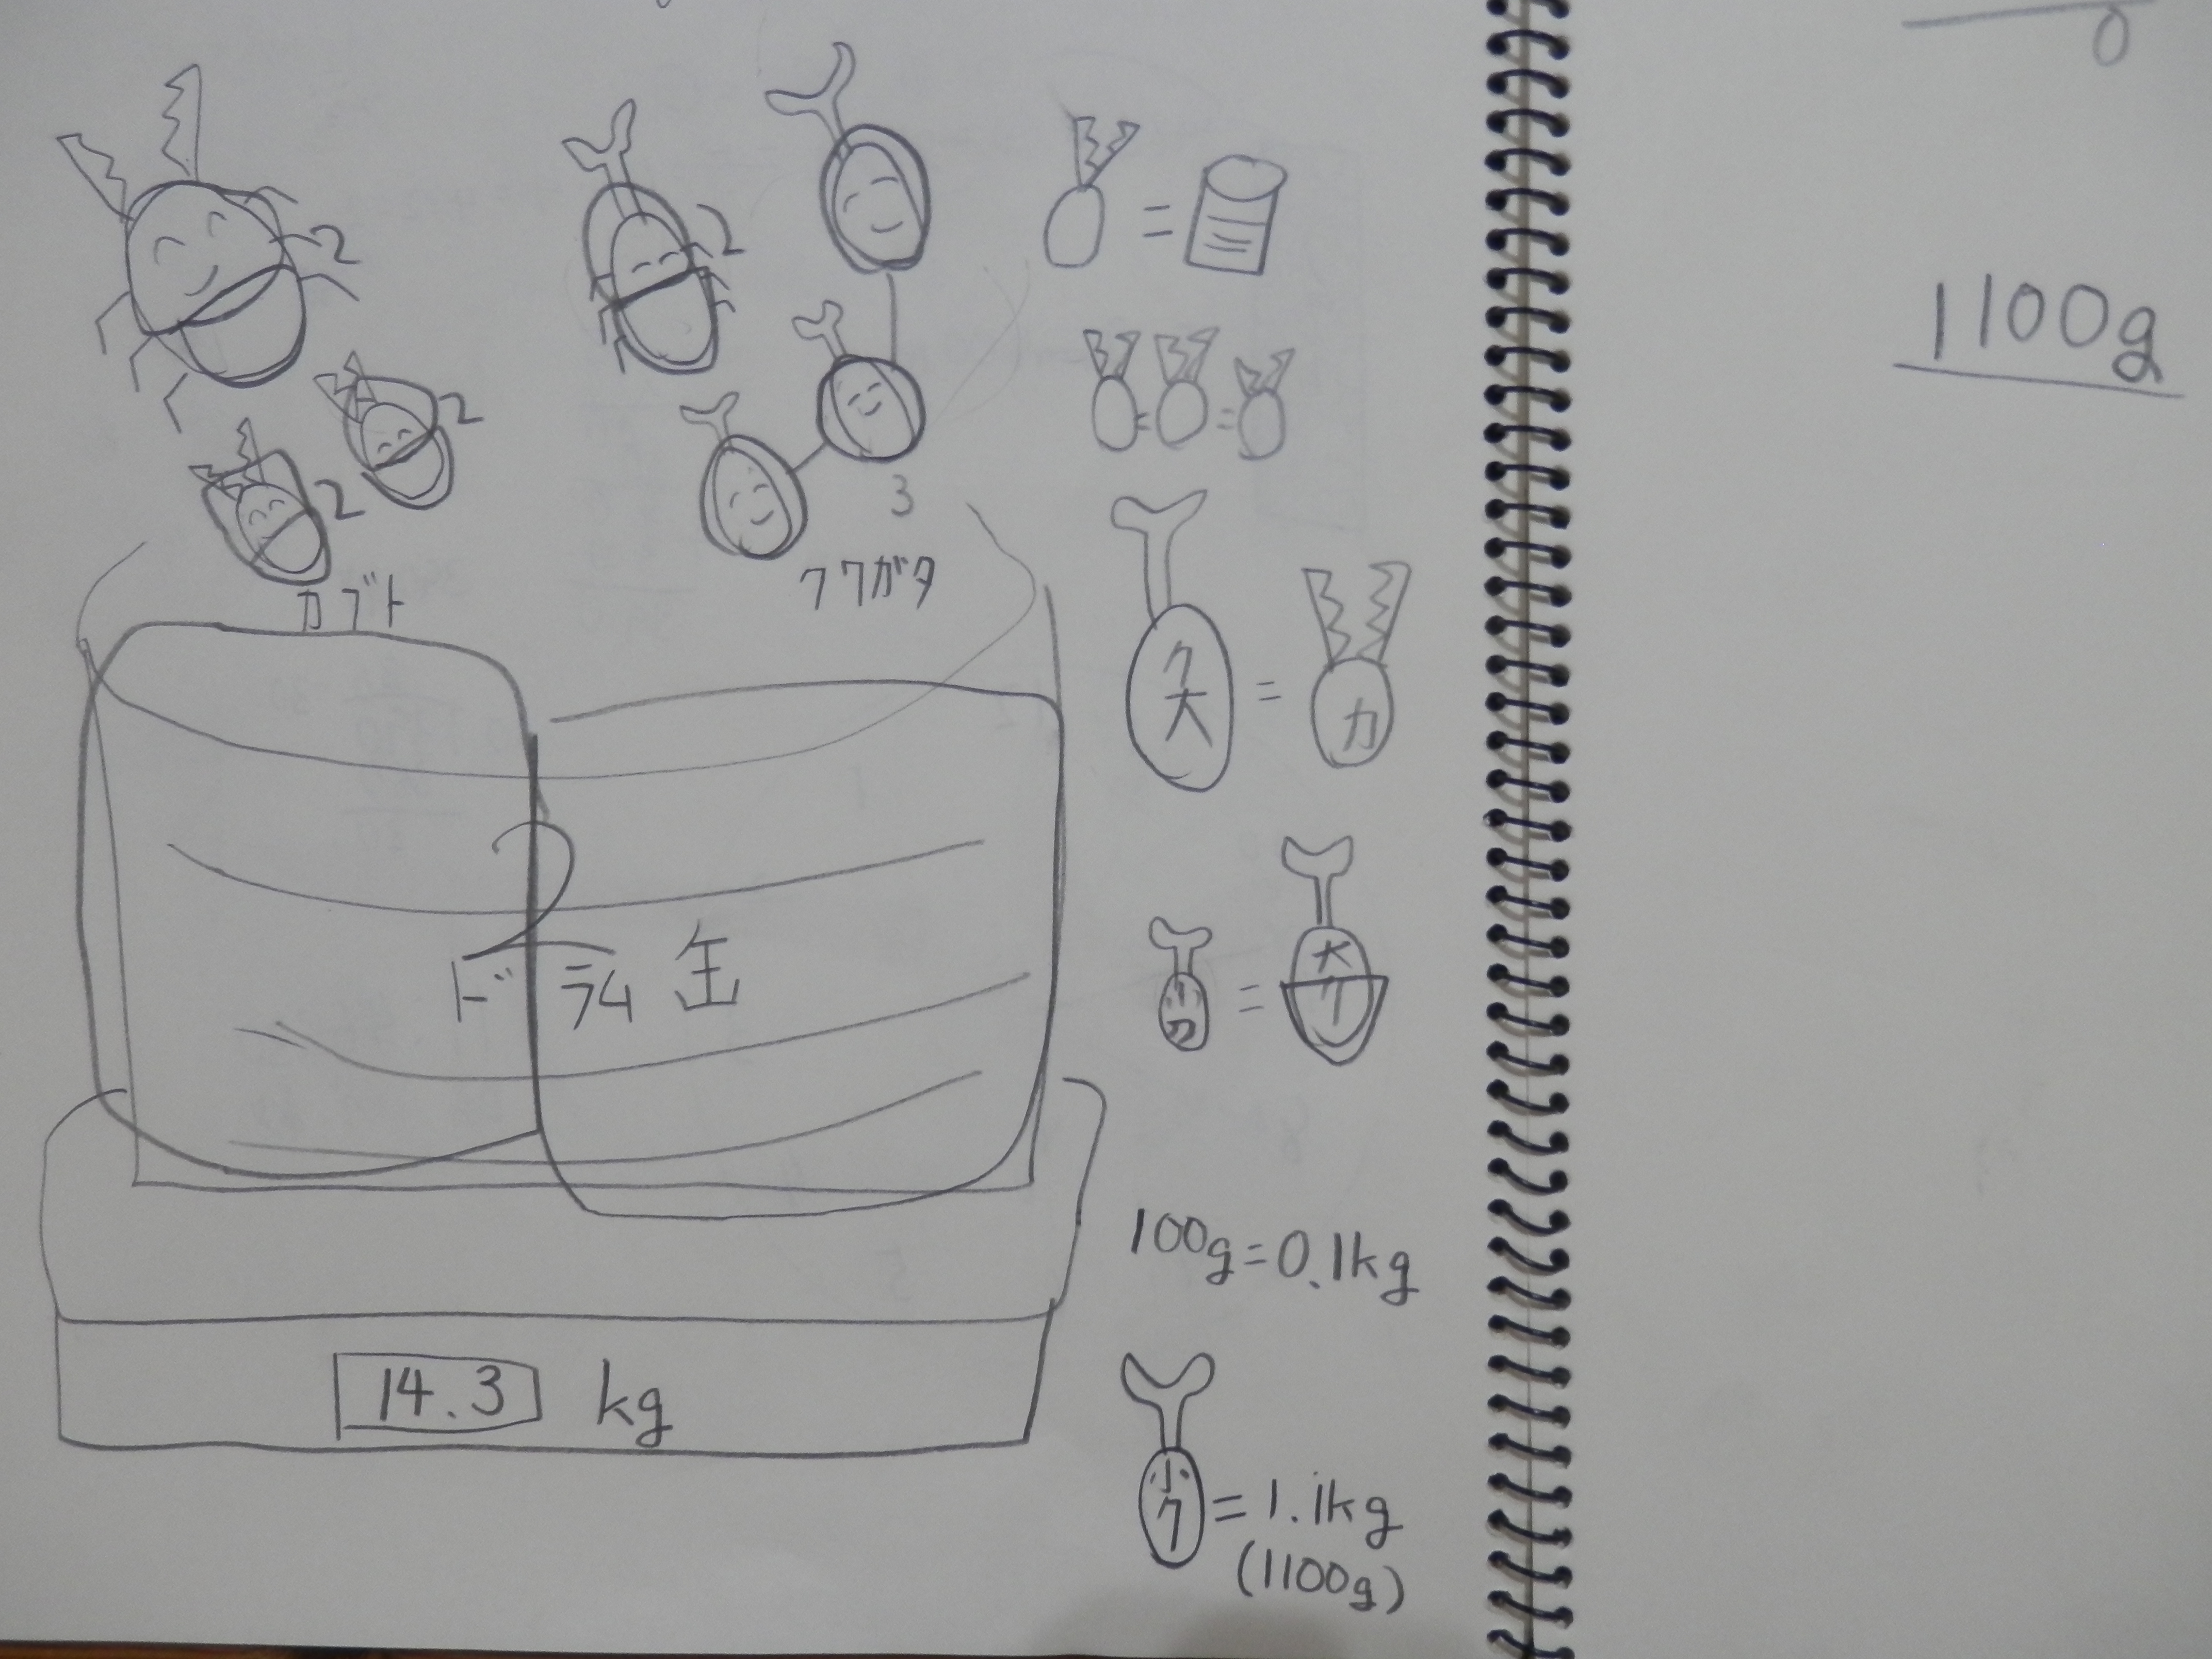 0
1100g
2
2
2
2
3
カブト
クワガタ
=
= =
ク大 = カ
小ク = 大ク
2
ドラム缶
100g=0.1kg
14.3 kg
小ク=1.1kg
(1100g)